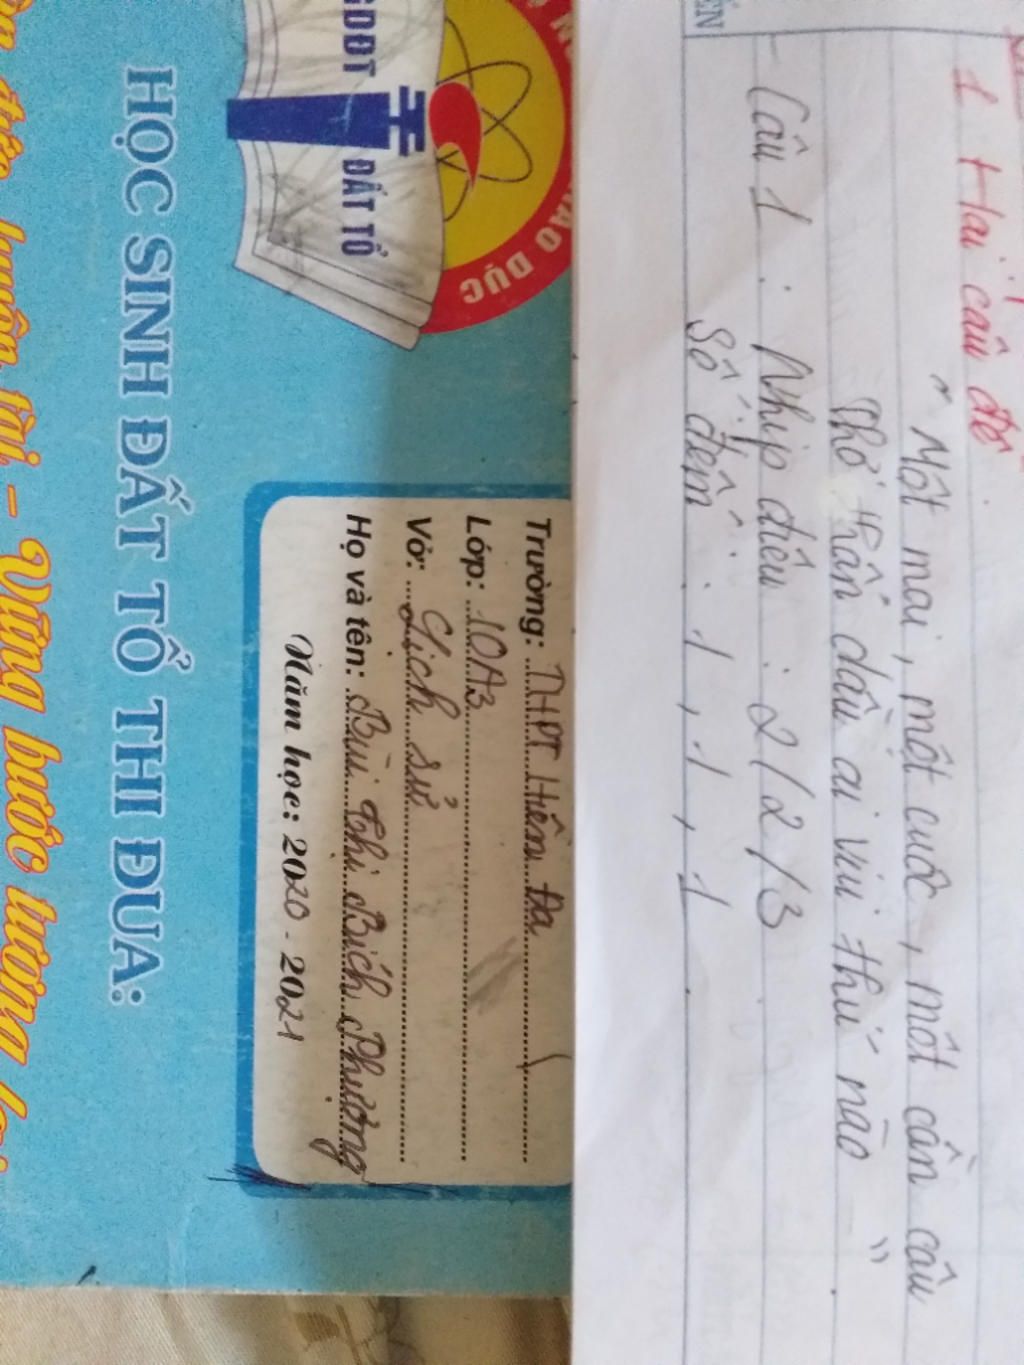 1 Hai câu đề
" Một mai, một cuốc, một cần câu
Thơ thẩn dầu ai vui thú nào "
- Câu 1 : Nhịp điệu : 2/2/3
Số đếm : 1, 1, 1
GDĐT
ĐẤT TỔ
DỤC
HỌC SINH ĐẤT TỔ THI ĐUA:
Trường: THPT Hiền Đa
Lớp: 10A3
Vở: Lịch sử
Họ và tên: Bùi Thị Bích Phượng
Năm học: 2020 - 2021
- Vững bước tương